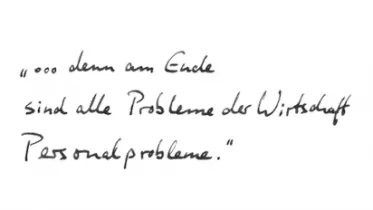 „... denn am Ende
sind alle Probleme der Wirtschaft
Personalprobleme.“